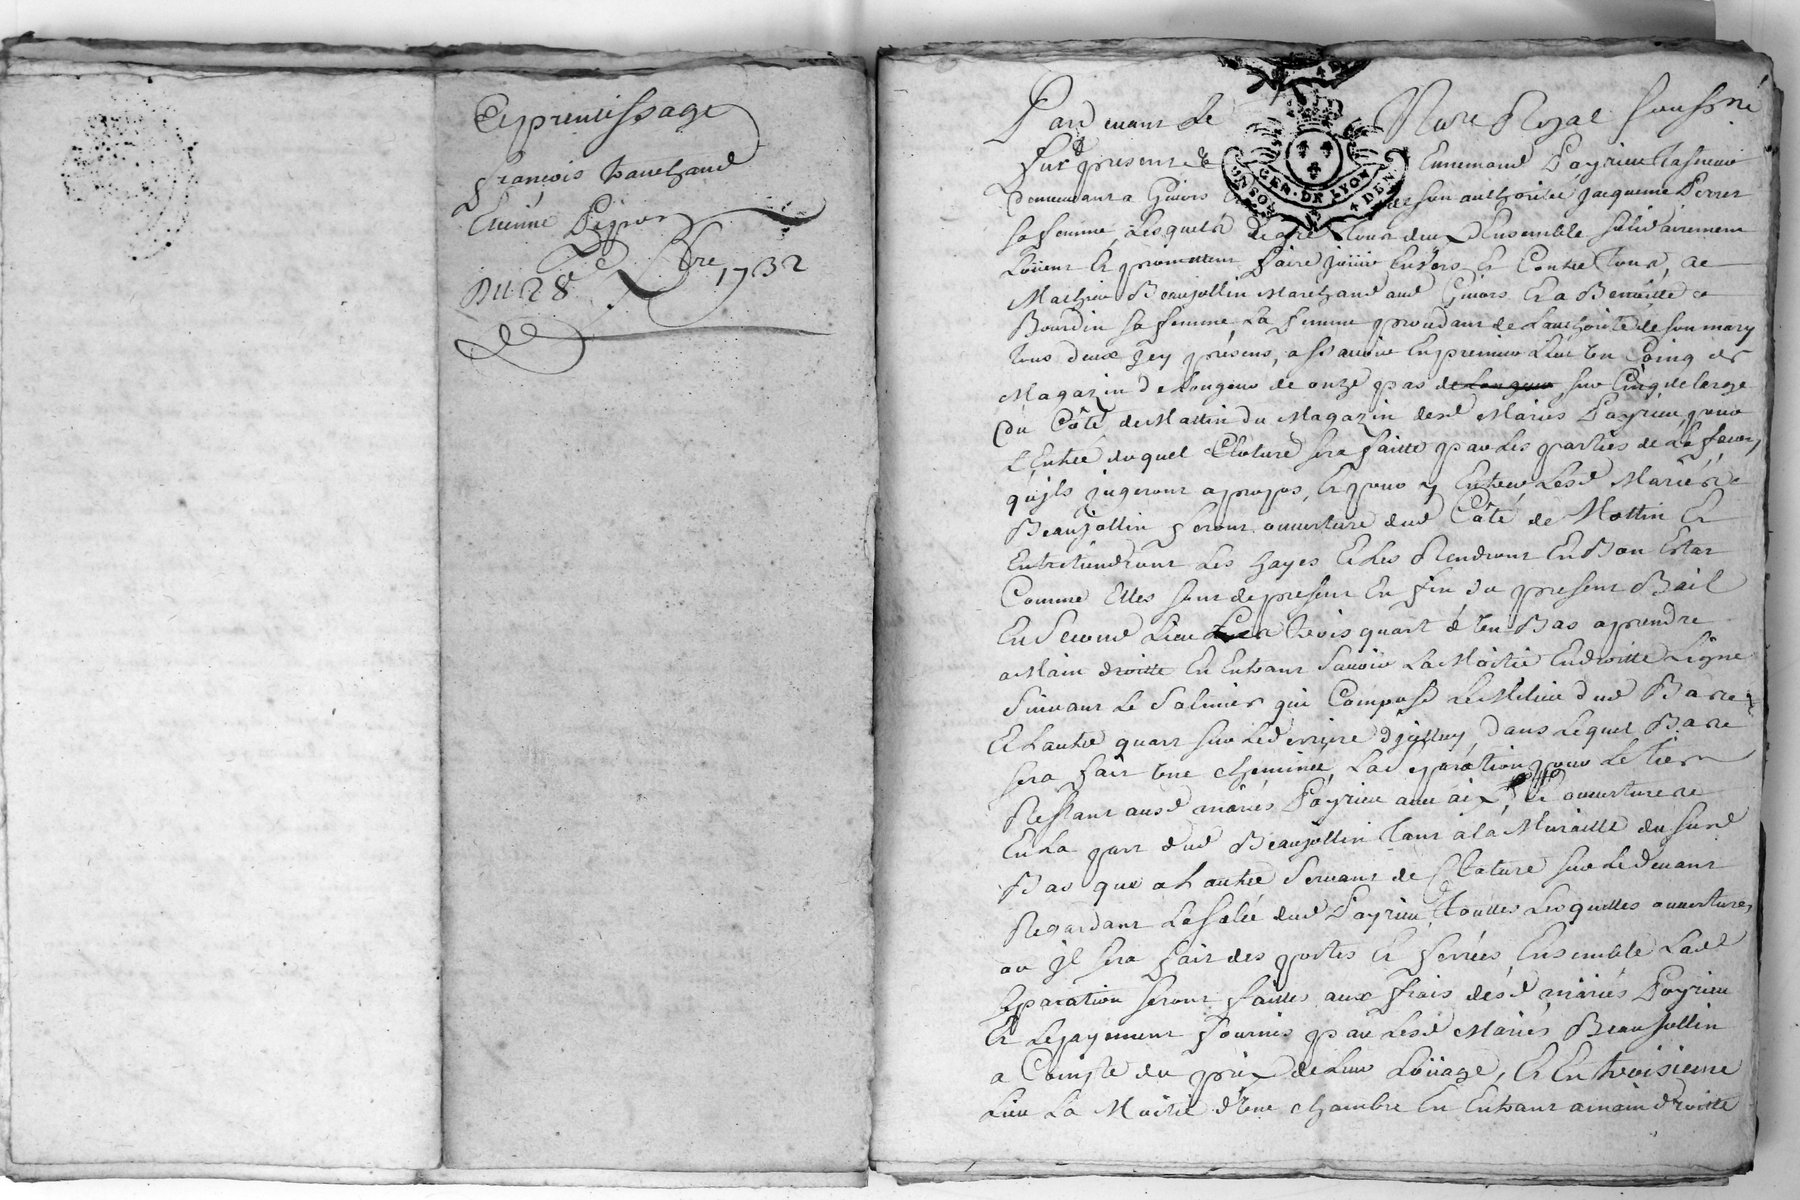 Apprentissage
françois
Etienne
Du 28e 8bre 1732
Pardevant Le Nore Royal soussné
fut present Ennemond Payrieu
demeurant a Givors son authorité Jacqueme Perret
sa femme, Lesquels de gré tous deux Ensemble solidairement
Loüent Et promettent faire joüir Envers Et Contre tous, a
Mathieu Beaujollin Marchand aud Givors Et a Benoitte
Bourdin sa femme La femme procedant de Lauthorité de son mary
tous deux jcy présens, assavoir En premier Lieu un Coing de
Magazin de Longeur de onze pas de Longeur sur Cinq de large
du Côté de Mattin du Magazin desd Mariés Payrieu, pour
L'Entrée duquel Cloture sera faitte par Les parties de La façon
qu'jls jugeront apropos, Et pour y Entrer Lesd Mariés
Beaujollin feront ouverture dud Côté de Mattin Et
Entretiendront Les hayes Et Les Rendront En Bon Estat
Comme Elles sont de present En fin du present Bail
En second Lieu Les trois quart d'un Bas aprendre
a Main droitte En Entrant savoir La Moitié En droitte Ligne
suivant Le Solinier qui Compose Le Milieu dud Bas
Et Lautre quart sur Le derriere d'jcelluy, dans Lequel Bas
sera fait une cheminée, La separation pour Le tier
Restant ausd mariés Payrieu ouverture
En La part dud Beaujollin tant à la Muraille du susd
Bas que a Lautre servant de Cloture sur Le devant
Regardant La dud Payrieu, touttes Lesquelles ouvertures
ou jl sera fait des portes Et ferrées Ensemble Lad
separation seront faittes aux frais desd mariés Payrieu
Et Le payement fournis par Lesd Mariés Beaujollin
a Compte du prix de Leur Loüage, Et En troisieme
Lieu La Moitié d'une chambre En Entrant a main droitte
GEN. DE LYON